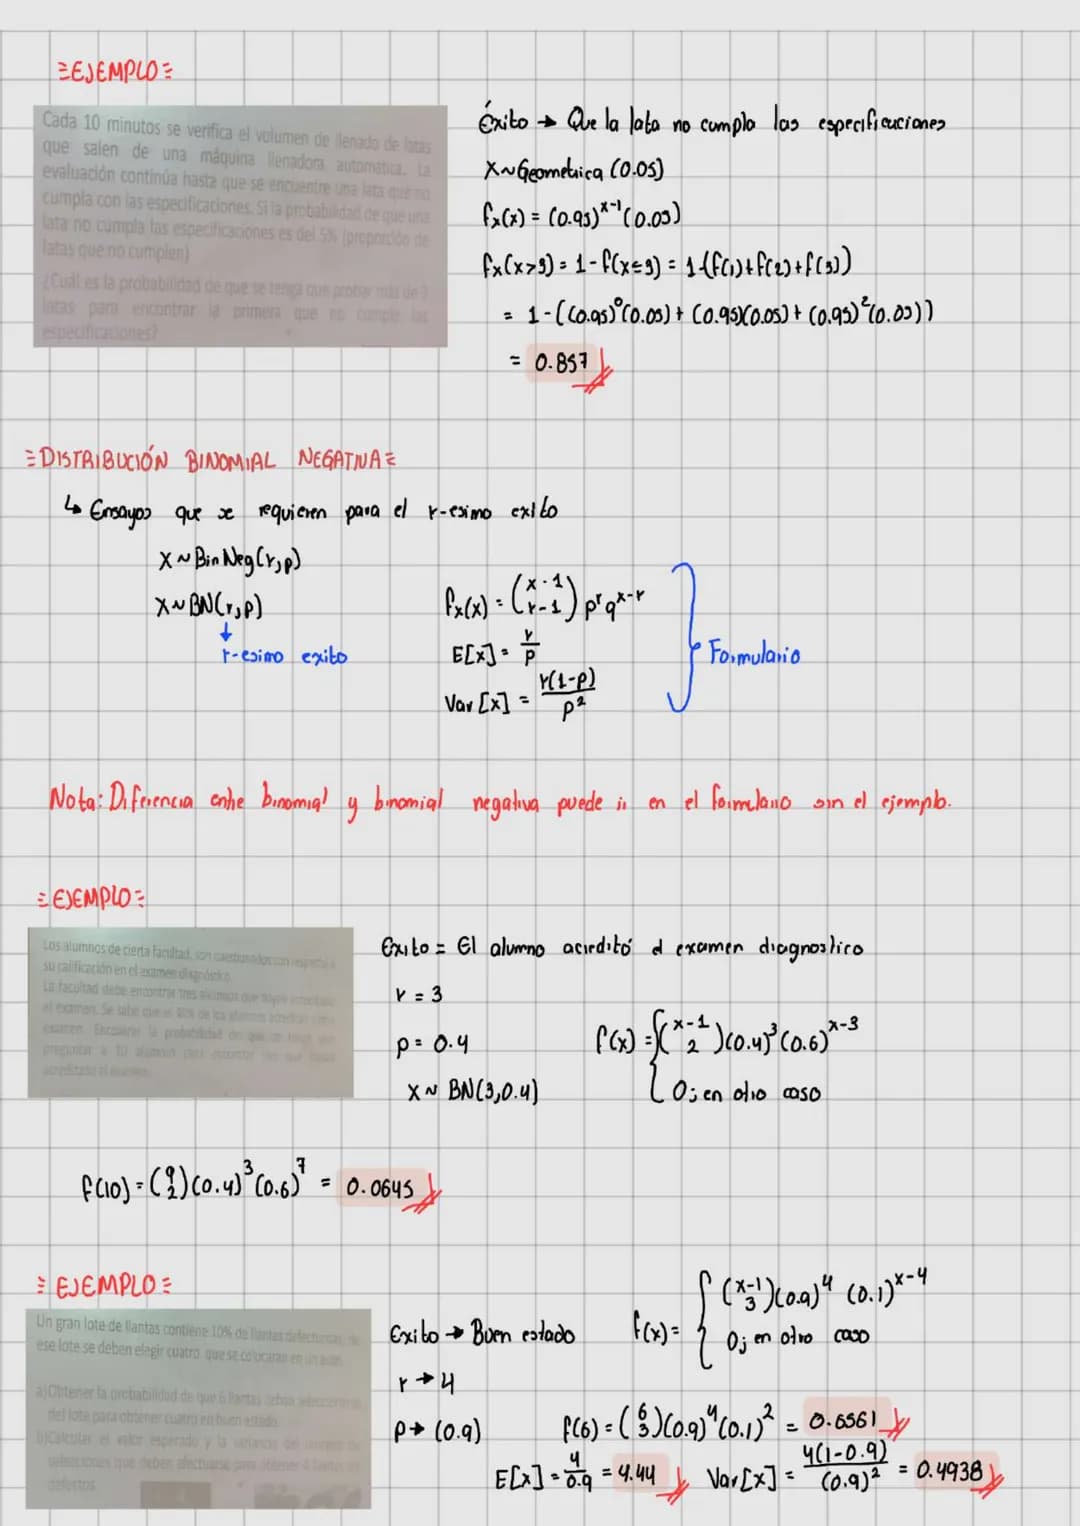 EJEMPLO
Cada 10 minutos se verifica el volumen de llenado de latas
que salen de una máquina llenadora automática. La
evaluación continúa hasta que se encuentre una lata que no
cumpla con las especificaciones. Si la probabilidad de que una
lata no cumpla las especificaciones es del 5% (proporción de
latas que no cumplen)
¿Cuál es la probabilidad de que se tenga que probar más de 3
latas para encontrar la primera que no cumple las
especificaciones?
Éxito → Que la lata no cumpla las especificaciones
X~Geometrica (0.05)
fx(x) = (0.95)^x-1 (0.05)
fx(x>3) = 1 - f(x≤3) = 1-(f(1)+f(2)+f(3))
= 1-((0.95)^0(0.05) + (0.95)(0.05) + (0.95)^2(0.05))
= 0.857
DISTRIBUCIÓN BINOMIAL NEGATIVA
↳ Ensayos que se requieren para el r-esimo exito
X ~ BinNeg(r,p)
X ~ BN(r,p)
↓
r-esimo exito
fx(x) = (x-1 r-1) p^r q^x-r
E[x] = r/p
Var [x] = r(1-p)/p^2
Formulario
Nota: Diferencia entre binomial y binomial negativa puede ir en el formulario sin el ejemplo.
EJEMPLO
Los alumnos de cierta facultad, son cuestionados con respecto a
su calificación en el examen diagnóstico.
La facultad debe encontrar tres alumnos que
el examen. Se sabe que el 40% de los alumnos acreditan
examen. Encuentre la probabilidad de que se tenga que
preguntar a 10 alumnos para encontrar
acreditado el examen.
Exito = El alumno acreditó el examen diagnostico
r = 3
p = 0.4
X ~ BN(3,0.4)
f(x) = { (x-1 2)(0.4)^3 (0.6)^x-3
0; en otro caso
f(10) = (9 2)(0.4)^3 (0.6)^7 = 0.0645
EJEMPLO
Un gran lote de llantas contiene 10% de llantas defectuosas, de
ese lote se deben elegir cuatro que se colocaran en un auto.
a)Obtener la probabilidad de que 6 llantas deban seleccionarse
del lote para obtener cuatro en buen estado.
b)Calcular el valor esperado y la varianza del número de
selecciones que deben efectuarse para obtener 4 llantas sin
defectos.
Exito → Buen estado
r → 4
p → (0.9)
f(x) = { (x-1 3)(0.9)^4 (0.1)^x-4
0; en otro caso
f(6) = (6 3)(0.9)^4 (0.1)^2 = 0.6561
E[x] = 4/0.9 = 4.44
Var[x] = 4(1-0.9)/(0.9)^2 = 0.4938